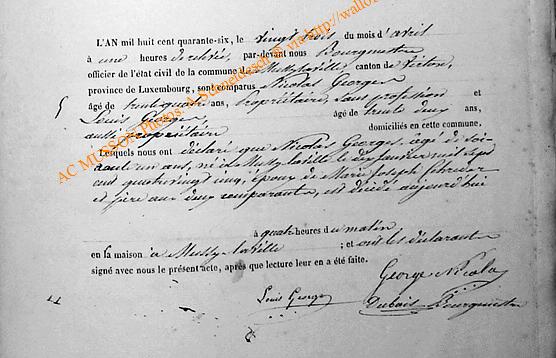 L'AN mil huit cent quarante-six, le vingt trois du mois d'avril
à une heures de relevée, par-devant nous Bourgmestre
officier de l'état civil de la commune de Mussy-la-ville canton de Virton,
province de Luxembourg, sont comparus Nicolas Georges
âgé de trente quatre ans, propriétaire, sans profession et
Louis Georges, âgé de trente deux ans,
aussi propriétaire domiciliés en cette commune,
Lesquels nous ont déclaré que Nicolas Georges, agé de soi-
xante un ans, né à Mussy-la-ville le dix janvier mil sept
cent quatre vingt cinq, époux de Marie Joseph
et père aux deux comparants, est décédé aujourd'hui
à quatre heures du matin
en sa maison à Mussy-la-ville ; et ont les déclarants
signé avec nous le présent acte, après que lecture leur en a été faite.
George Nicolas
Louis George
Dubois Bourgmestre
AC MUSSON Photos: A. Schneidesch © via http://wallo